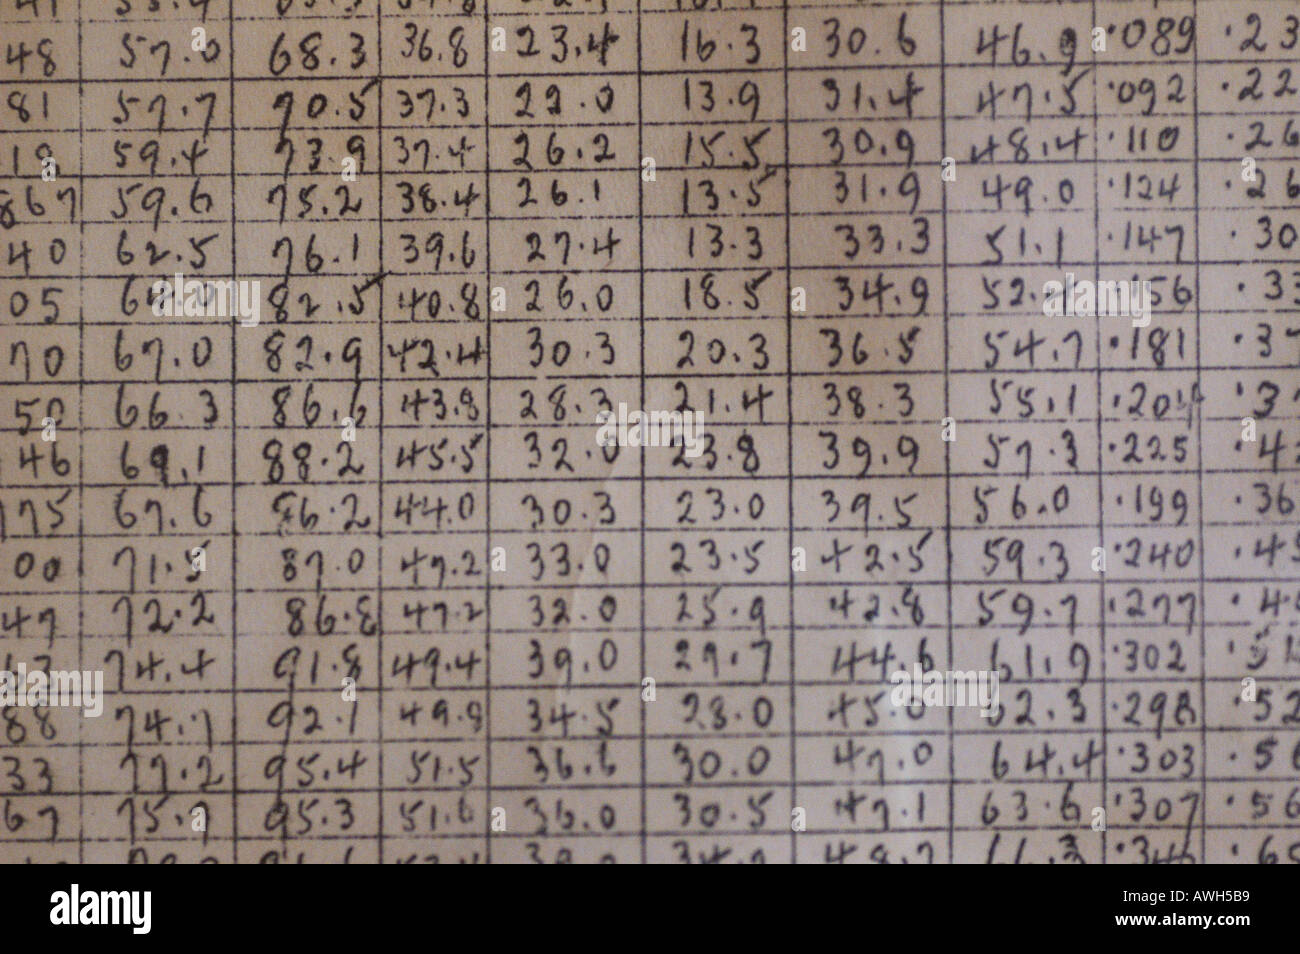 48 57.0 68.3 36.8 23.4 16.3 30.6 46.9 .089 .23
81 57.7 70.5 37.3 22.0 13.9 31.4 47.5 .092 .22
59.4 73.9 37.4 26.2 15.5 30.9 48.4 .110 .26
867 59.6 75.2 38.4 26.1 13.5 31.9 49.0 .124 .26
40 62.5 76.1 39.6 27.4 13.3 33.3 51.1 .147 .30
05 82.5 40.8 26.0 18.5 34.9 52.4 .156 .33
70 67.0 82.9 42.4 30.3 20.3 36.5 54.7 .181 .37
50 66.3 86.6 43.8 28.3 21.4 38.3 55.1 .3
46 69.1 88.2 45.5 32.0 23.8 39.9 57.3 .225 .4
75 67.6 86.2 44.0 30.3 23.0 39.5 56.0 .199 .36
00 71.5 87.0 47.2 33.0 23.5 42.5 59.3 .240 .45
47 72.2 86.8 47.2 32.0 25.9 42.8 59.7 .277 .4
74.4 91.8 49.4 39.0 29.7 44.6 61.9 .302
88 74.7 92.1 49.8 34.5 28.0 45.0 62.3 .298 .52
33 77.2 95.4 51.5 36.6 30.0 47.0 64.4 .303 .56
67 75.7 95.3 51.6 36.0 30.5 47.1 63.6 .307 .56
alamy
Image ID: AWH5B9
www.alamy.com